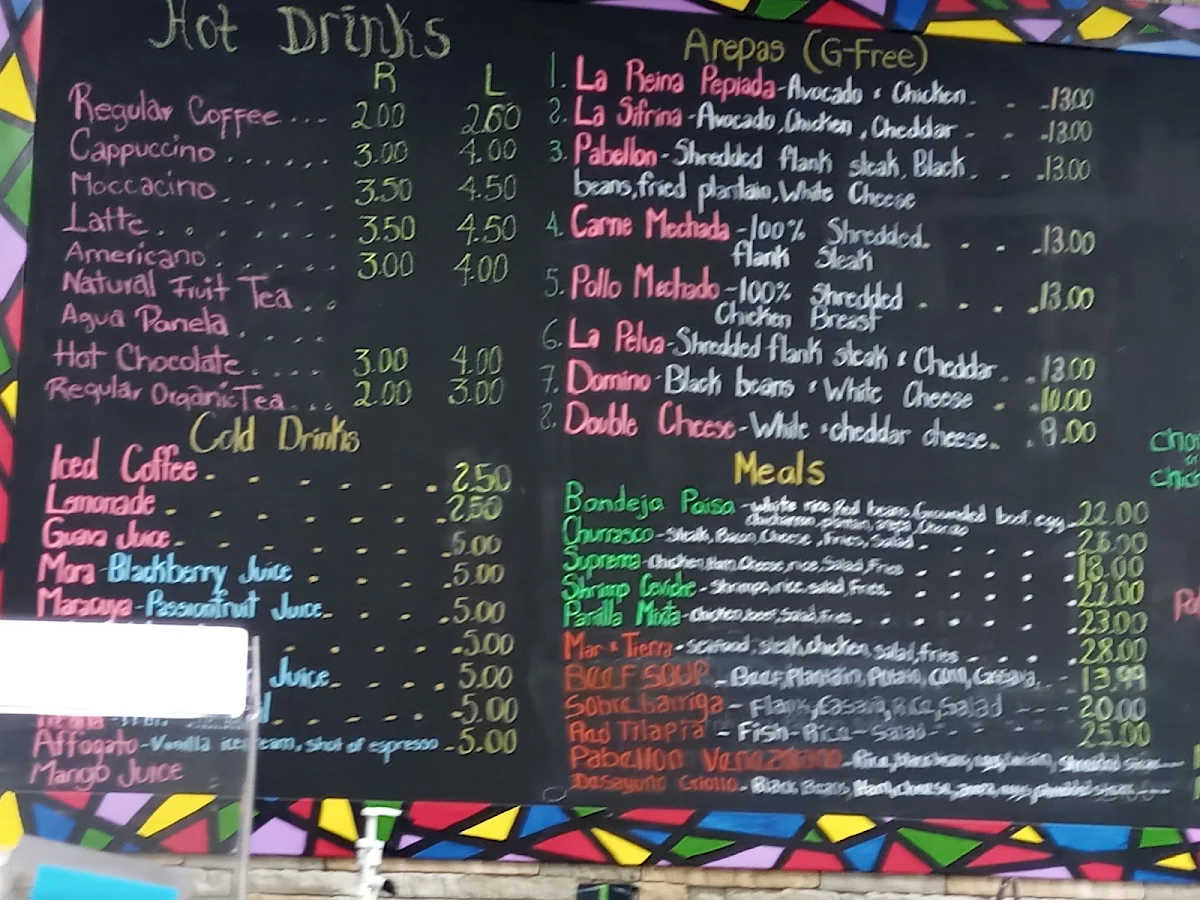 Hot Drinks
R L
Regular Coffee ... 2.00 2.60
Cappuccino ...... 3.00 4.00
Moccacino ..... 3.50 4.50
Latte ....... 3.50 4.50
Americano ...... 3.00 4.00
Natural Fruit Tea ..
Agua Panela ....
Hot Chocolate .... 3.00 4.00
Regular Organic Tea ... 2.00 3.00
Cold Drinks
Iced Coffee 2.50
Lemonade 2.50
Guava Juice 5.00
Mora - Blackberry Juice 5.00
Maracuya - Passionfruit Juice 5.00
5.00
Juice 5.00
5.00
Affogato - Vanilla ice eam, shot of espresso - 5.00
Mango Juice
Arepas (G-Free)
1. La Reina Pepiada - Avocado & Chicken 13.00
2. La Sifrina - Avocado, Chicken, Cheddar 13.00
3. Pabellon - Shredded flank steak, Black 13.00
beans, fried plantain, White Cheese
4. Carne Mechada - 100% Shredded 13.00
flank Steak
5. Pollo Mechado - 100% Shredded 13.00
Chicken Breast
6. La Pelua - Shredded flank steak & Cheddar 13.00
7. Domino - Black beans & White Cheese 10.00
8. Double Cheese - White & cheddar cheese 9.00
Meals
Bandeja Paisa - white rice, Red beans, Grounded beef, egg 22.00
chicharron, plantain, arepa, Chorizo
Churrasco - Steak, Bacon, Cheese, Fries, Salad
Suprema - Chicken, Ham, Cheese, rice, Salad, Fries 18.00
Shrimp Ceviche - Shrimps, rice, salad, Fries 22.00
Parrilla Mixta - Chicken, beef, Salad, Fries 23.00
Mar & Tierra - seafood, steak, chicken, salad, fries 28.00
BEEF SOUP - Beef, Plantain, Potato, Corn, Cassava 13.99
Sobrebarriga - Flank, Casava, Rice, Salad --- 20.00
Red Tilapia - Fish - Rice - Salad 25.00
Pabellon Venezolano - Rice,
Desayuno Criollo - Black Beans, Ham, cheese, arepa, eggs,